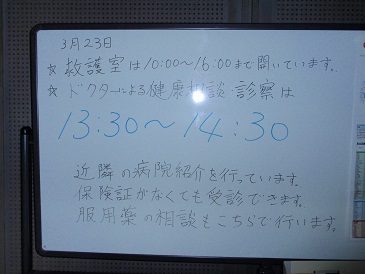 3月23日
☆ 救護室は10:00〜16:00まで開いています。
☆ ドクターによる健康相談・診察は
13:30〜14:30
近隣の病院紹介を行っています。
保険証がなくても受診できます。
服用薬の相談もこちらで行います。